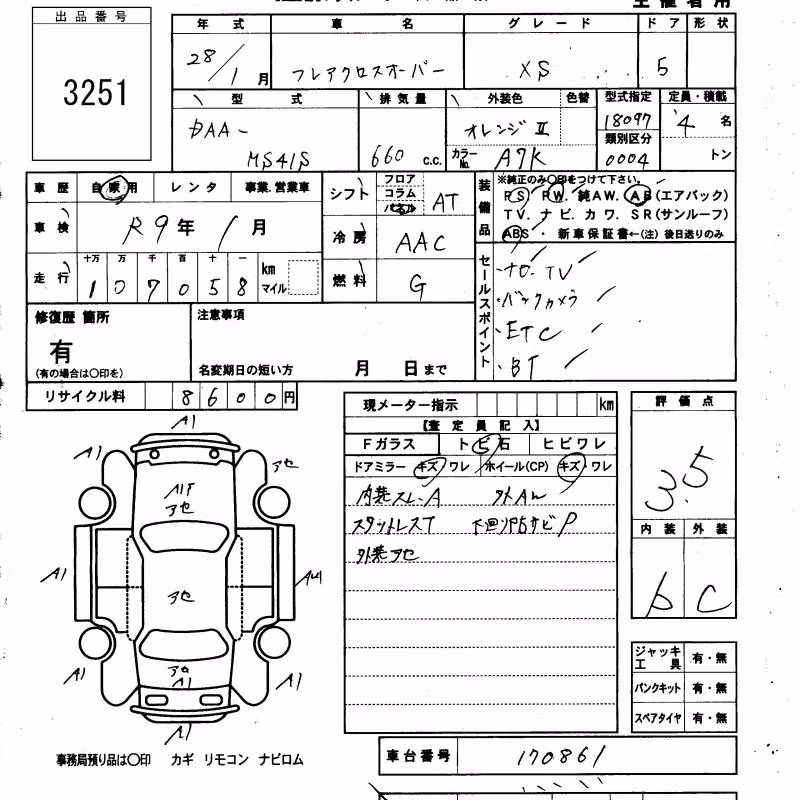 出品番号
3251
年式 車名 グレード ドア 形状
28/1月 フレアクロスオーバー XS 5
型式 排気量 外装色 色替 型式指定 定員・積載
DAA- MS41S 660 c.c. オレンジⅡ 18097 4名
カラーNo. A7K 類別区分 0004 トン
車歴 自家用 レンタ 事業.営業車
車検 R9年1月
走行 十万 万 千 百 十 一 km マイル
107058
シフト フロア コラム パネル AT
冷房 AAC
燃料 G
装備品 ※純正のみ○印をつけて下さい。
PS PW. 純AW. AB(エアバック)
TV. ナビ. カワ. SR(サンルーフ)
ABS・ 新車保証書←(注) 後日送りのみ
セールスポイント
・ナビ・TV
・バックカメラ
・ETC
・BT
修復歴 箇所
有
(有の場合は○印を)
注意事項
名変期日の短い方 月 日まで
リサイクル料 8600円
現メーター指示 km
【査定員記入】
Fガラス トビ石 ヒビワレ
ドアミラー キズ・ワレ ホイール(CP) キズ・ワレ
内装スレ-A 外AW
スタットレスT 下廻り内サビP
外装アセ
評価点
3.5
内装 外装
b C
ジャッキ 工具 有・無
パンクキット 有・無
スペアタイヤ 有・無
A1
A1 アセ
A1F
アセ
A1 アセ
アセ
A1
A1 A1
A1
事務局預り品は○印 カギ リモコン ナビロム
車台番号 170861